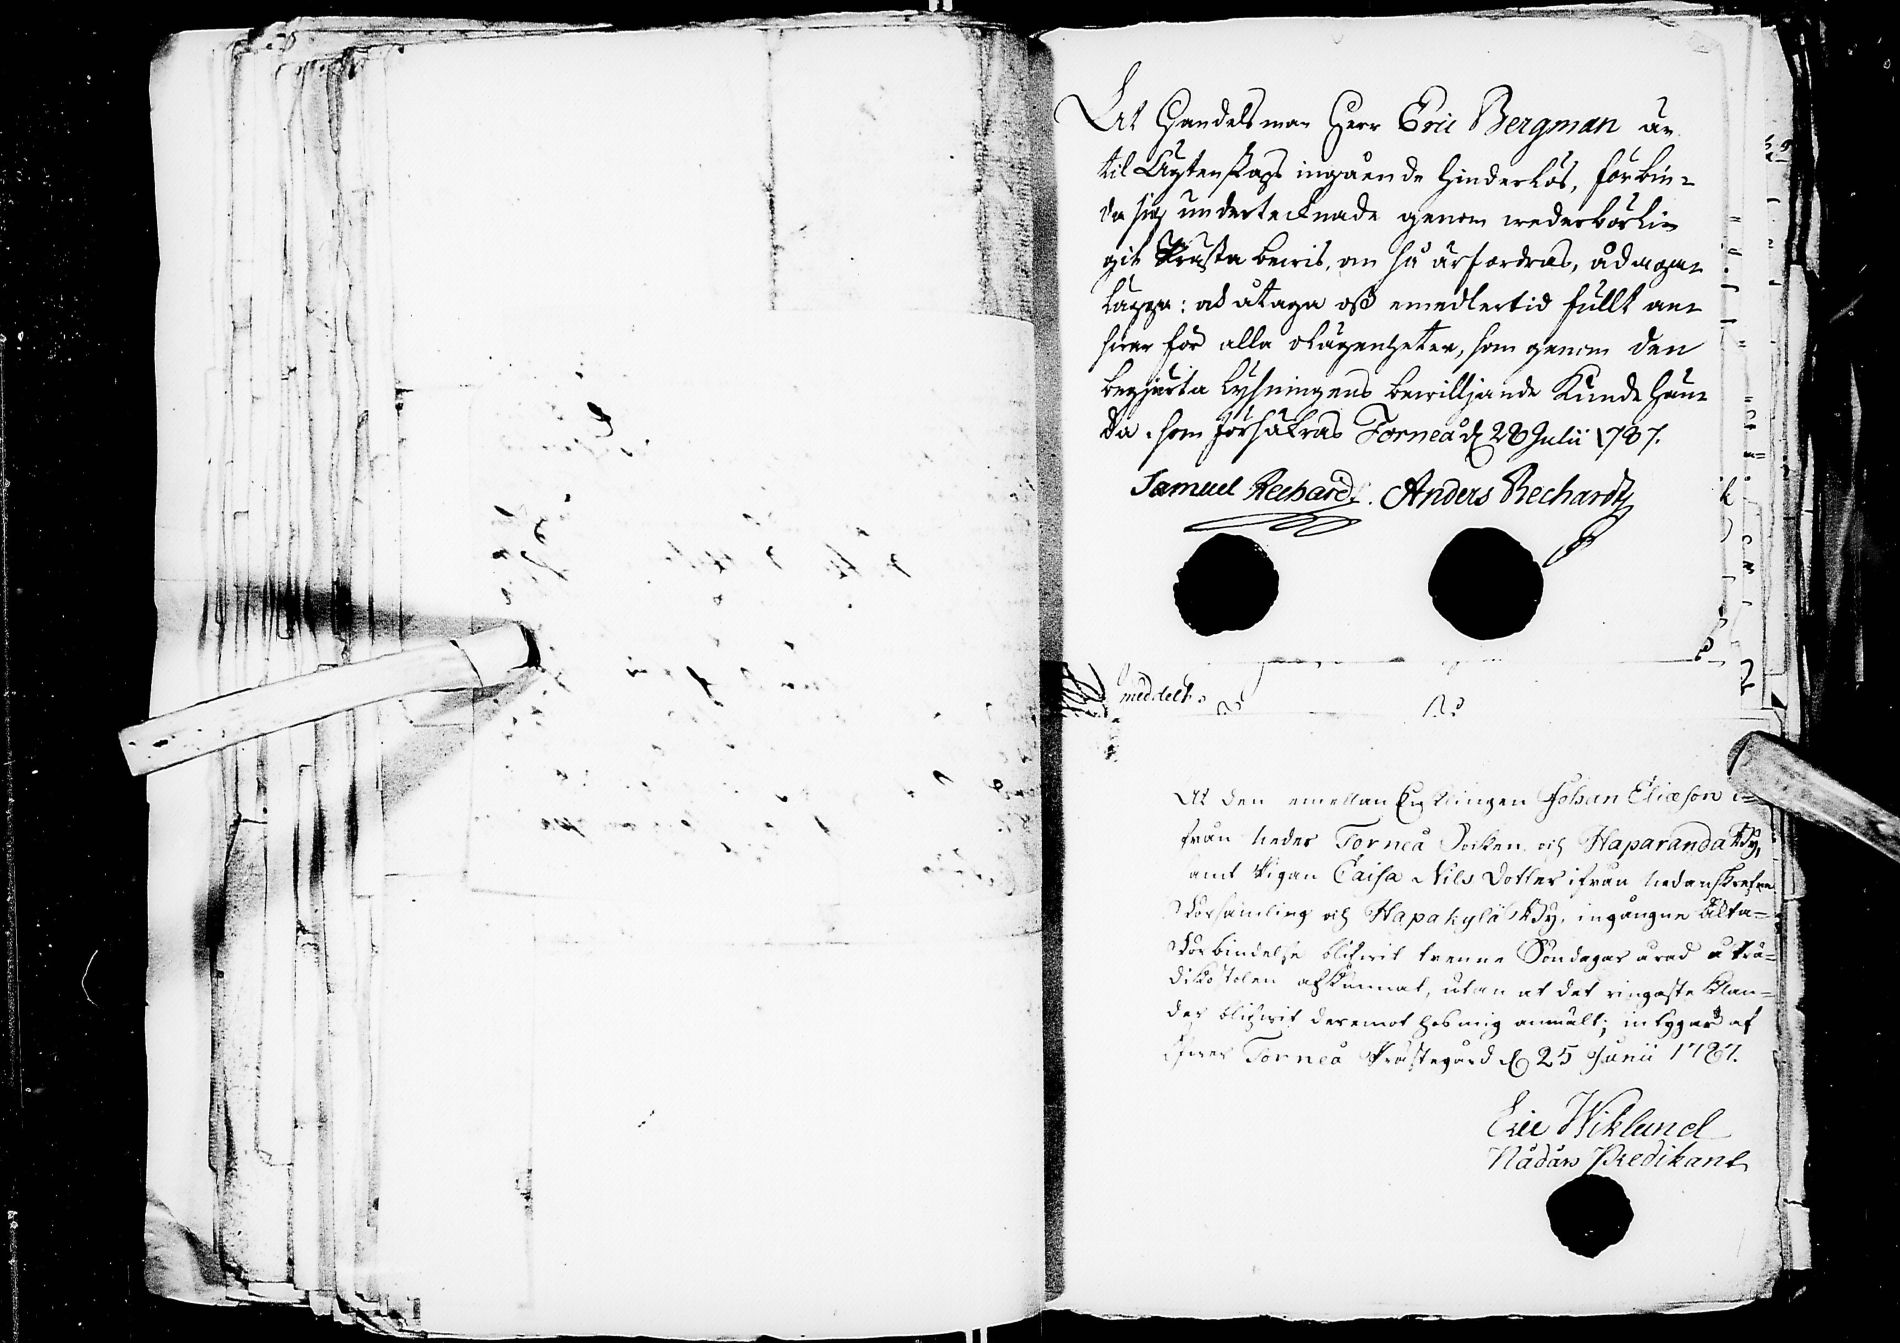 At Handelsman Herr Eric Bergman är
til Ägtenskaps ingående hinderlös, förbin=
da sig undertecknade genom wederbörli=
git Prästa bewis, om så ärfordras, ådaga=
lägga: at åtaga oss emedlertid fullt an=
swar för alla olägenheter, som genom den
begjärta lysningens bewilljande kunde hän=
da. som försäkras Torneå d 28 Julii 1787.
Samuel Rechardt. Anders Rechardt
meddelt.
At den emellan Ynglingen Johan Eliæson i=
från Neder Torneå Socken och Haparanda By,
samt Pigan Caisa Nils Dotter ifrån nedanskrefne
Församling och Hapakylä By, ingångne ägta=
förbindelse blifwit trenne Söndagar å rad å Prä=
dikostolen afkunnat, utan at det ringaste klan=
der blifwit deremot hos mig anmält; intygar af
Öfwer Torneå Prästegård d 25 Junii 1787.
Eric Wiklund
Nådårs Predikant